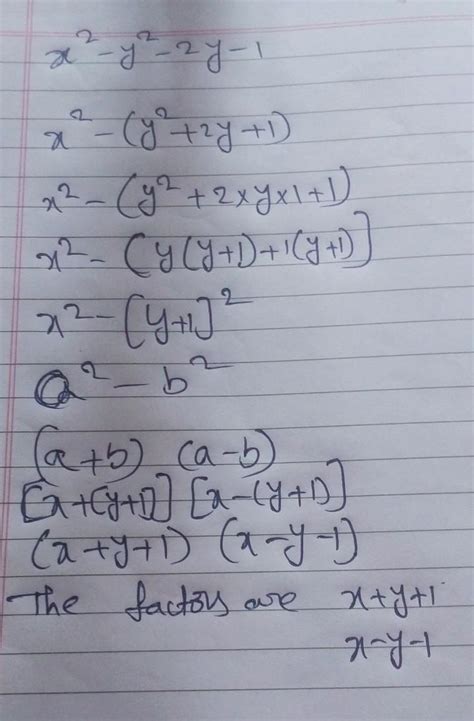 x² - y² - 2y - 1
x² - (y² + 2y + 1)
x² - (y² + 2 × y × 1 + 1)
x² - (y(y+1) + 1(y+1)]
x² - [y+1]²
a² - b²
(a+b) (a-b)
[x+(y+1)] [x-(y+1)]
(x+y+1) (x-y-1)
The factors are x+y+1
x-y-1